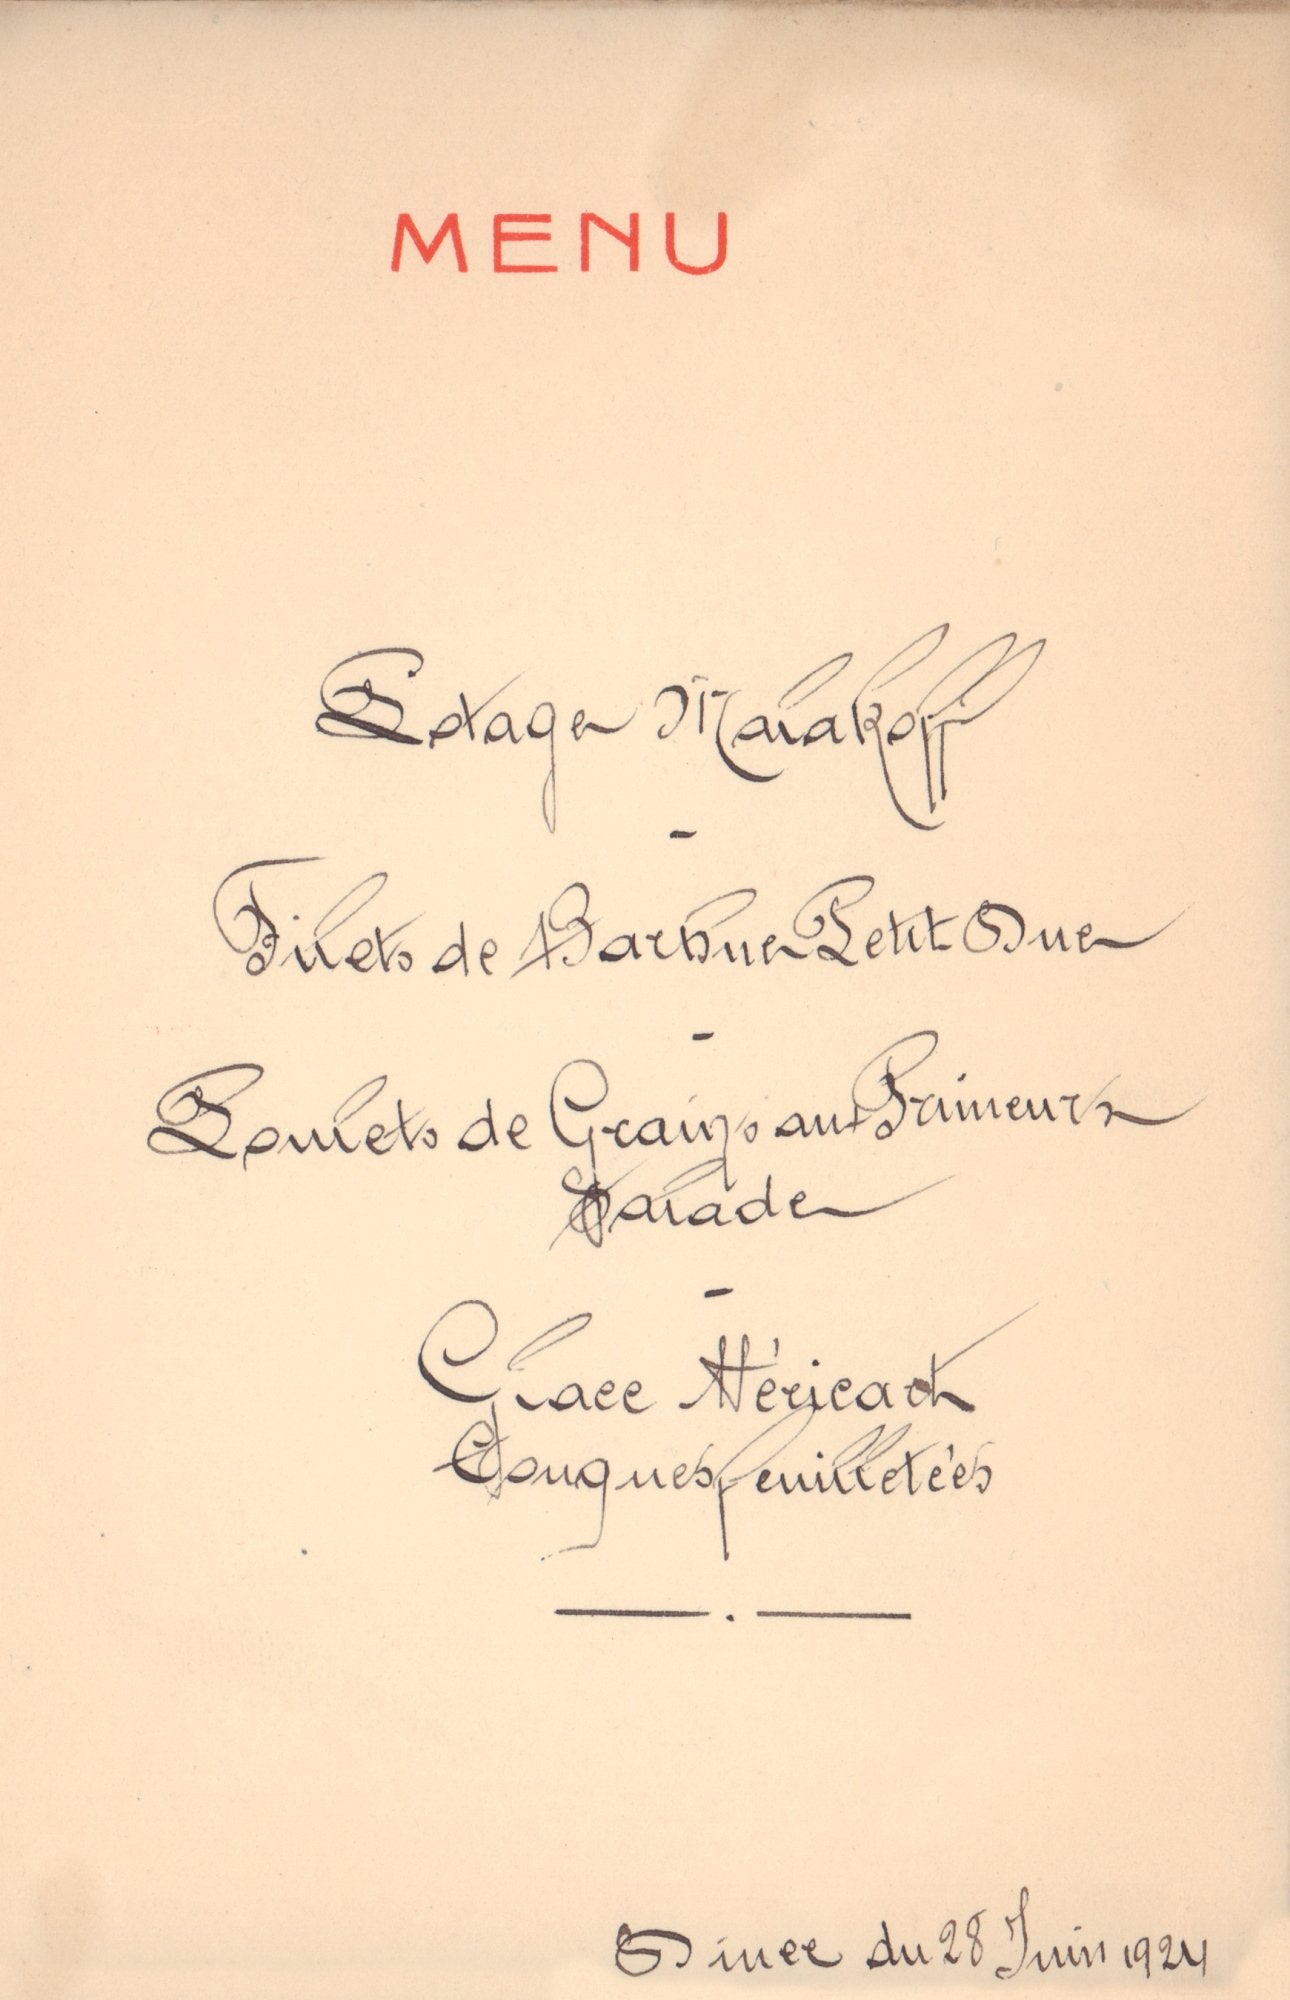 MENU
Potage Malakoff
-
Filets de Barbue Petit Duc
-
Poulets de Grains aux Primeurs
Salade
-
Glace Héricart
Couques feuilletées
Diner du 28 Juin 1924